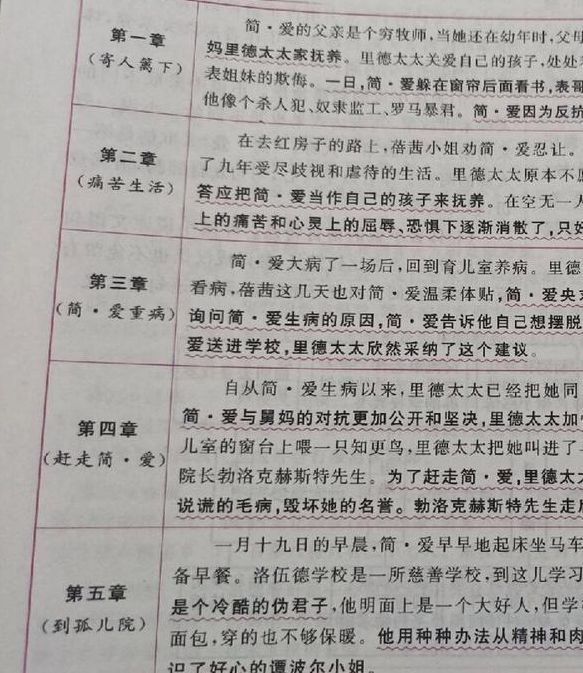 第一章
（寄人篱下）
简·爱的父亲是个穷牧师，当她还在幼年时，父母
妈里德太太家抚养。里德太太关爱自己的孩子，处处
表姐妹的欺侮。一日，简·爱躲在窗帘后面看书，表哥
他像个杀人犯、奴隶监工、罗马暴君。简·爱因为反抗
第二章
（痛苦生活）
在去红房子的路上，蓓茜小姐劝简·爱忍让。
了九年受尽歧视和虐待的生活。里德太太原本不
答应把简·爱当作自己的孩子来抚养。在空无一人
上的痛苦和心灵上的屈辱、恐惧下逐渐消散了，只好
第三章
（简·爱重病）
简·爱大病了一场后，回到育儿室养病。里德
看病，蓓茜这几天也对简·爱温柔体贴，简·爱央
询问简·爱生病的原因，简·爱告诉他自己想摆脱
爱送进学校，里德太太欣然采纳了这个建议。
第四章
（赶走简·爱）
自从简·爱生病以来，里德太太已经把她同
简·爱与舅妈的对抗更加公开和坚决，里德太太加
儿室的窗台上喂一只知更鸟，里德太太把她叫进了
院长勃洛克赫斯特先生。为了赶走简·爱，里德太
说谎的毛病，毁坏她的名誉。勃洛克赫斯特先生走
第五章
（到孤儿院）
一月十九日的早晨，简·爱早早地起床坐马车
备早餐。洛伍德学校是一所慈善学校，到这儿学习
是个冷酷的伪君子，他明面上是一个大好人，但学
面包，穿的也不够保暖。他用种种办法从精神和肉
识了好心的谭波尔小姐。